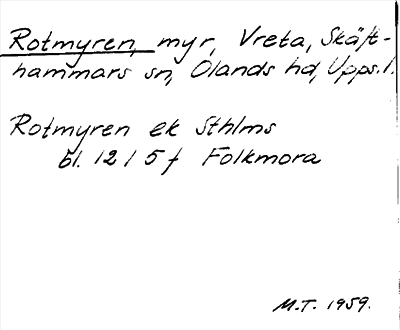 Rotmyren, myr, Vreta, Skäft-
hammars sn, Olands hd, Upps. l.
Rotmyren ek Sthlms
bl. 12 I 5 f Folkmora
M.T. 1959.